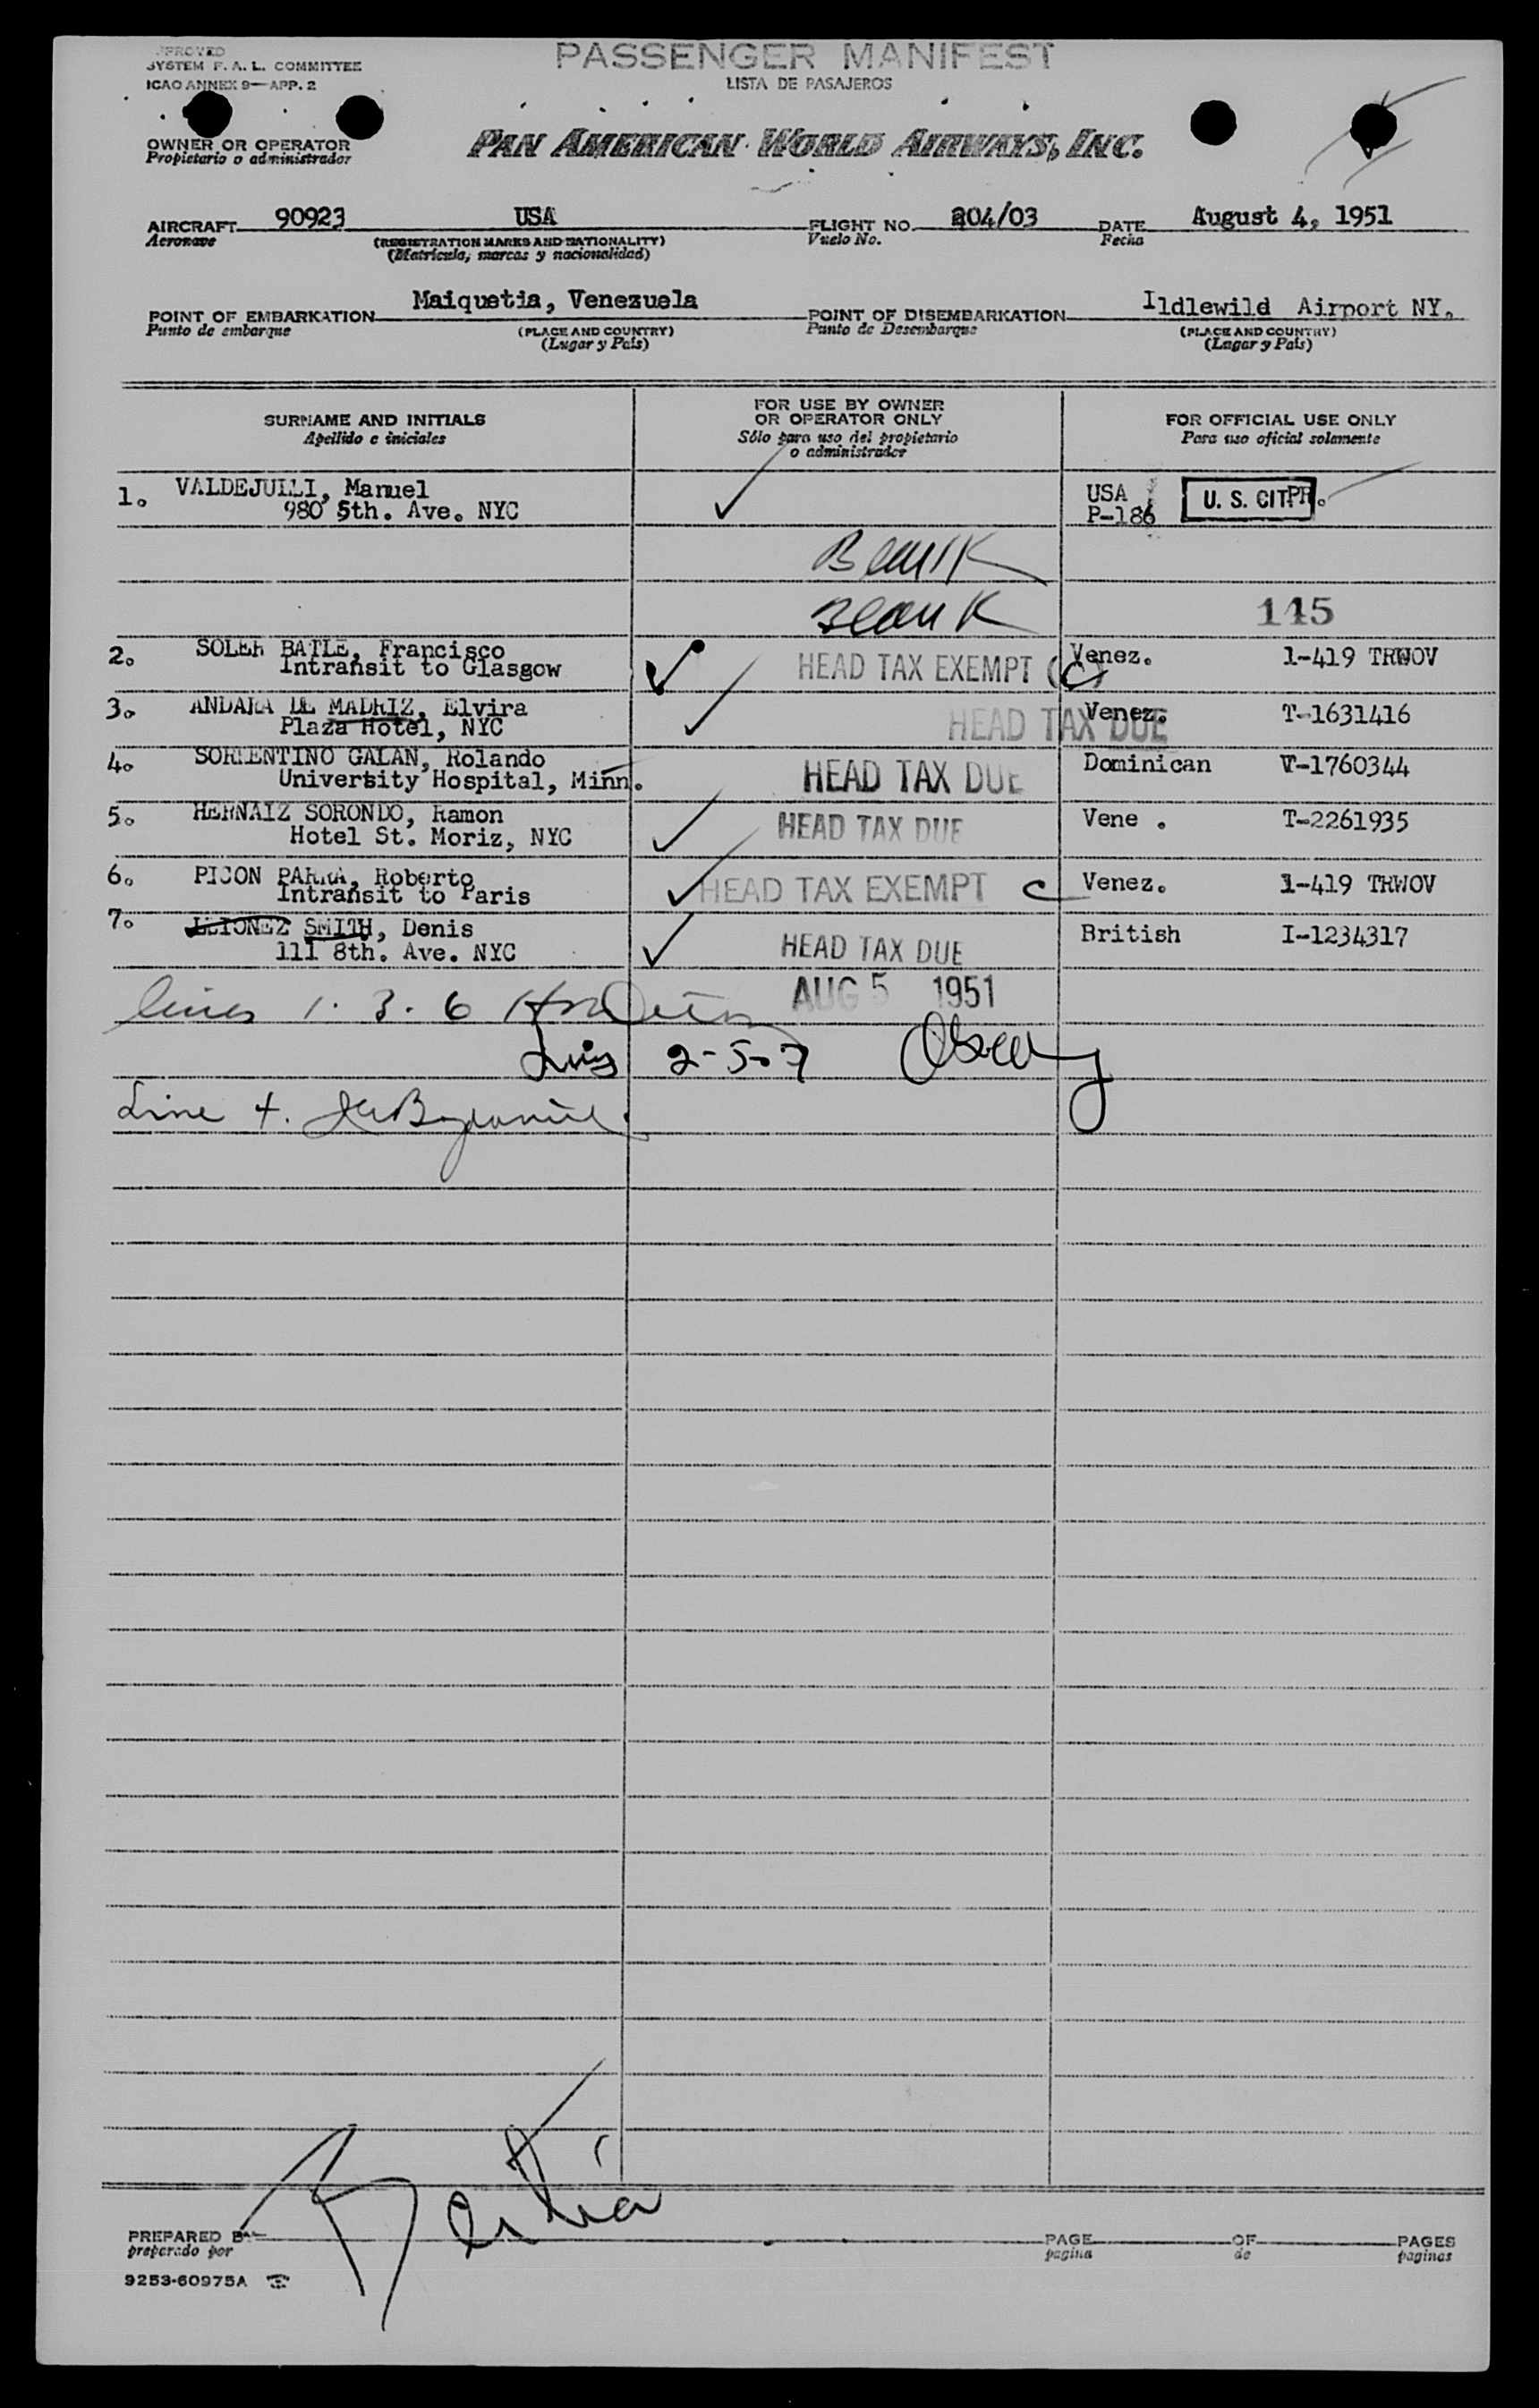 APPROVED
SYSTEM F. A. L. COMMITTEE
ICAO ANNEX 9—APP. 2
PASSENGER MANIFEST
LISTA DE PASAJEROS
OWNER OR OPERATOR
Propietario o administrador
PAN AMERICAN WORLD AIRWAYS, INC.
AIRCRAFT 90923 USA FLIGHT NO. 204/03 DATE August 4, 1951
Aeronave (REGISTRATION MARKS AND NATIONALITY) Vuelo No. Fecha
(Matrícula, marcas y nacionalidad)
POINT OF EMBARKATION Maiquetia, Venezuela POINT OF DISEMBARKATION Ildlewild Airport NY.
Punto de embarque (PLACE AND COUNTRY) Punto de Desembarque (PLACE AND COUNTRY)
(Lugar y País) (Lugar y País)
SURNAME AND INITIALS FOR USE BY OWNER OR OPERATOR ONLY FOR OFFICIAL USE ONLY
Apellido e iniciales Sólo para uso del propietario o administrador Para uso oficial solamente
1. VALDEJUILI, Manuel USA U. S. CIT. PR.
980 5th. Ave. NYC P-186
Blank
Blank 145
2. SOLER BATLE, Francisco HEAD TAX EXEMPT (C) Venez. 1-419 TRWOV
Intransit to Glasgow
3. ANDARA DE MADRIZ, Elvira HEAD TAX DUE Venez. T-1631416
Plaza Hotel, NYC
4. SORRENTINO GALAN, Rolando HEAD TAX DUE Dominican V-1760344
University Hospital, Minn.
5. HERNAIZ SORONDO, Ramon HEAD TAX DUE Vene . T-2261935
Hotel St. Moriz, NYC
6. PICON PARRA, Roberto HEAD TAX EXEMPT C Venez. 1-419 TRWOV
Intransit to Paris
7. SMITH, Denis HEAD TAX DUE British I-1234317
111 8th. Ave. NYC
AUG 5 1951
lines 1. 3. 6
2-5-7
Line 4.
PREPARED BY PAGE OF PAGES
preparado por pagina de paginas
9253-60975A